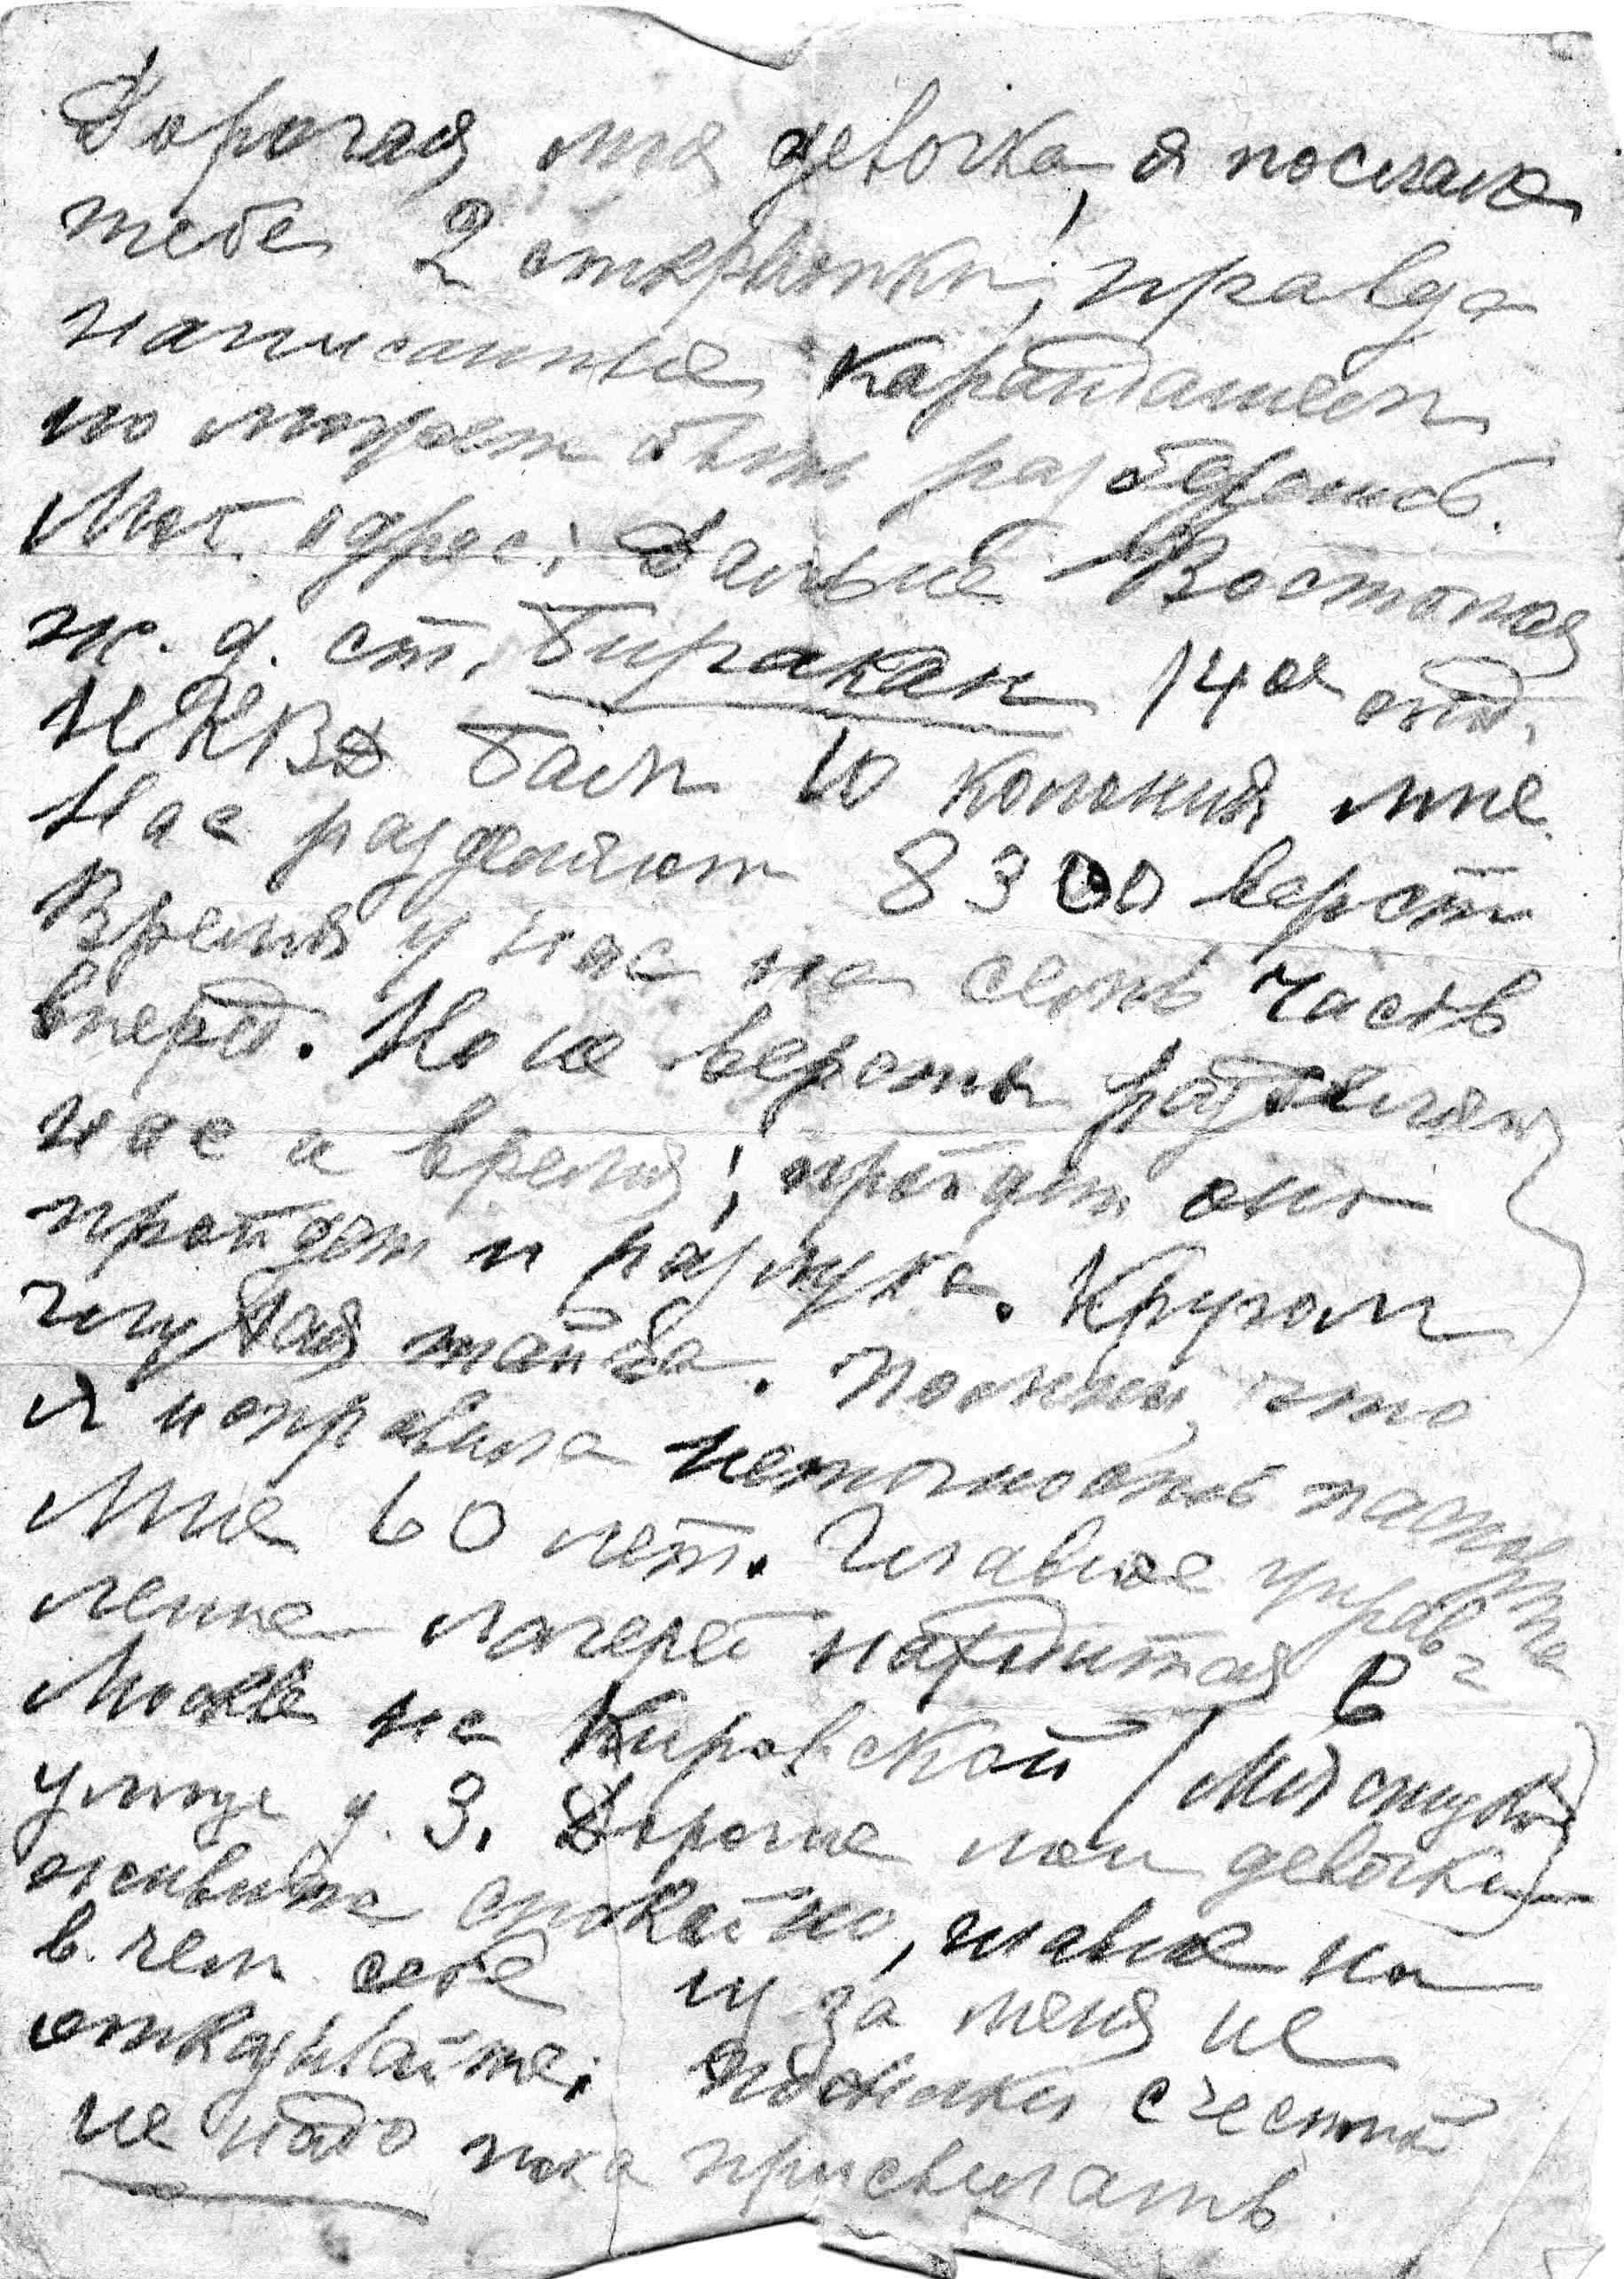 Дорогая моя девочка, я послала
тебе 2 открытки, правда
написанные карандашем
но может быть разберешь.
Мой адрес: Дальне Восточная
ж. д. ст. Биракан 14ое отд.
НКВД Бам 10 колония мне.
Нас разделяют 8300 верст
Время у нас на семь часов
вперед. Но не версты разделяют
нас а время; пройдет оно
пройдет и разлука. Кругом
глухая тайга. Помни, что
я исправила неточность паспорта
Мне 60 лет. Главное управ-
ление лагерей находится в
Москве на Кировской (Мясницкой)
улице д. 3. Дорогие мои девочки
живите спокойно, главное ни
в чем себе из за меня не
отказывайте; посылки съестной
не надо пока присылать